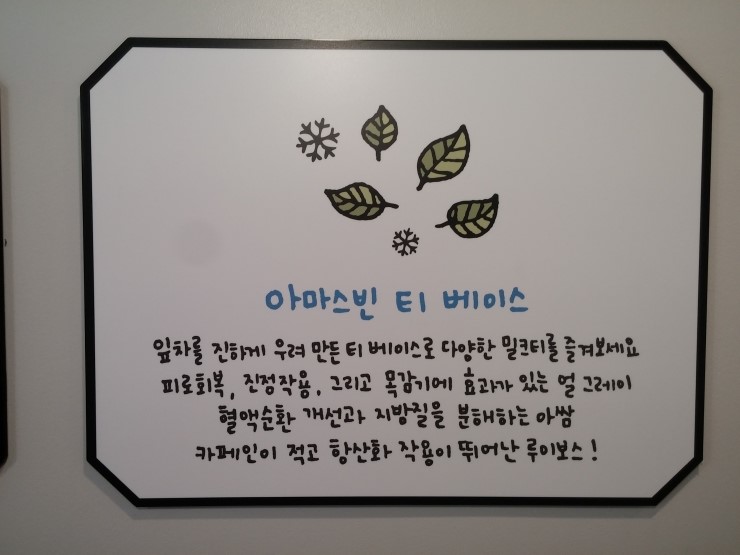 아마스빈 티 베이스
잎차를 진하게 우려 만든 티 베이스로 다양한 밀크티를 즐겨보세요
피로회복, 진정작용, 그리고 목감기에 효과가 있는 얼 그레이
혈액순환 개선과 지방질을 분해하는 아쌈
카페인이 적고 항산화 작용이 뛰어난 루이보스!